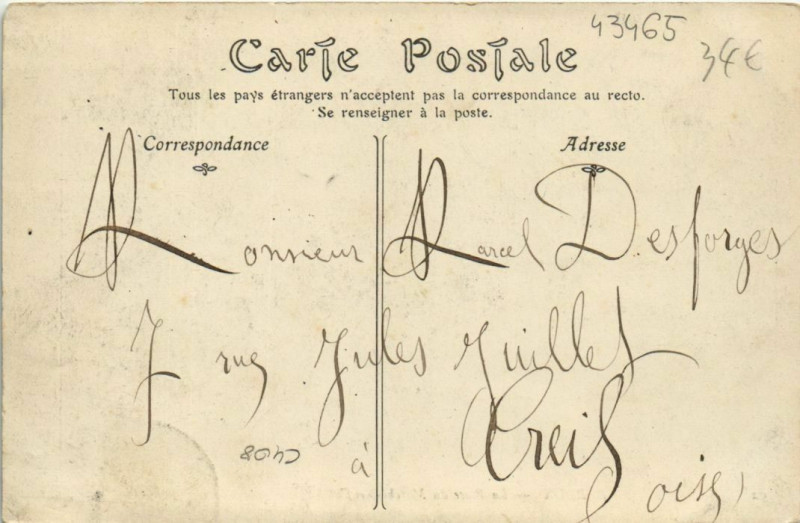 43465
34€
Carte Postale
Tous les pays étrangers n'acceptent pas la correspondance au recto.
Se renseigner à la poste.
Correspondance
Adresse
Monsieur Marcel Desforges
7 rue Jules Juillet
à Creil
oise)